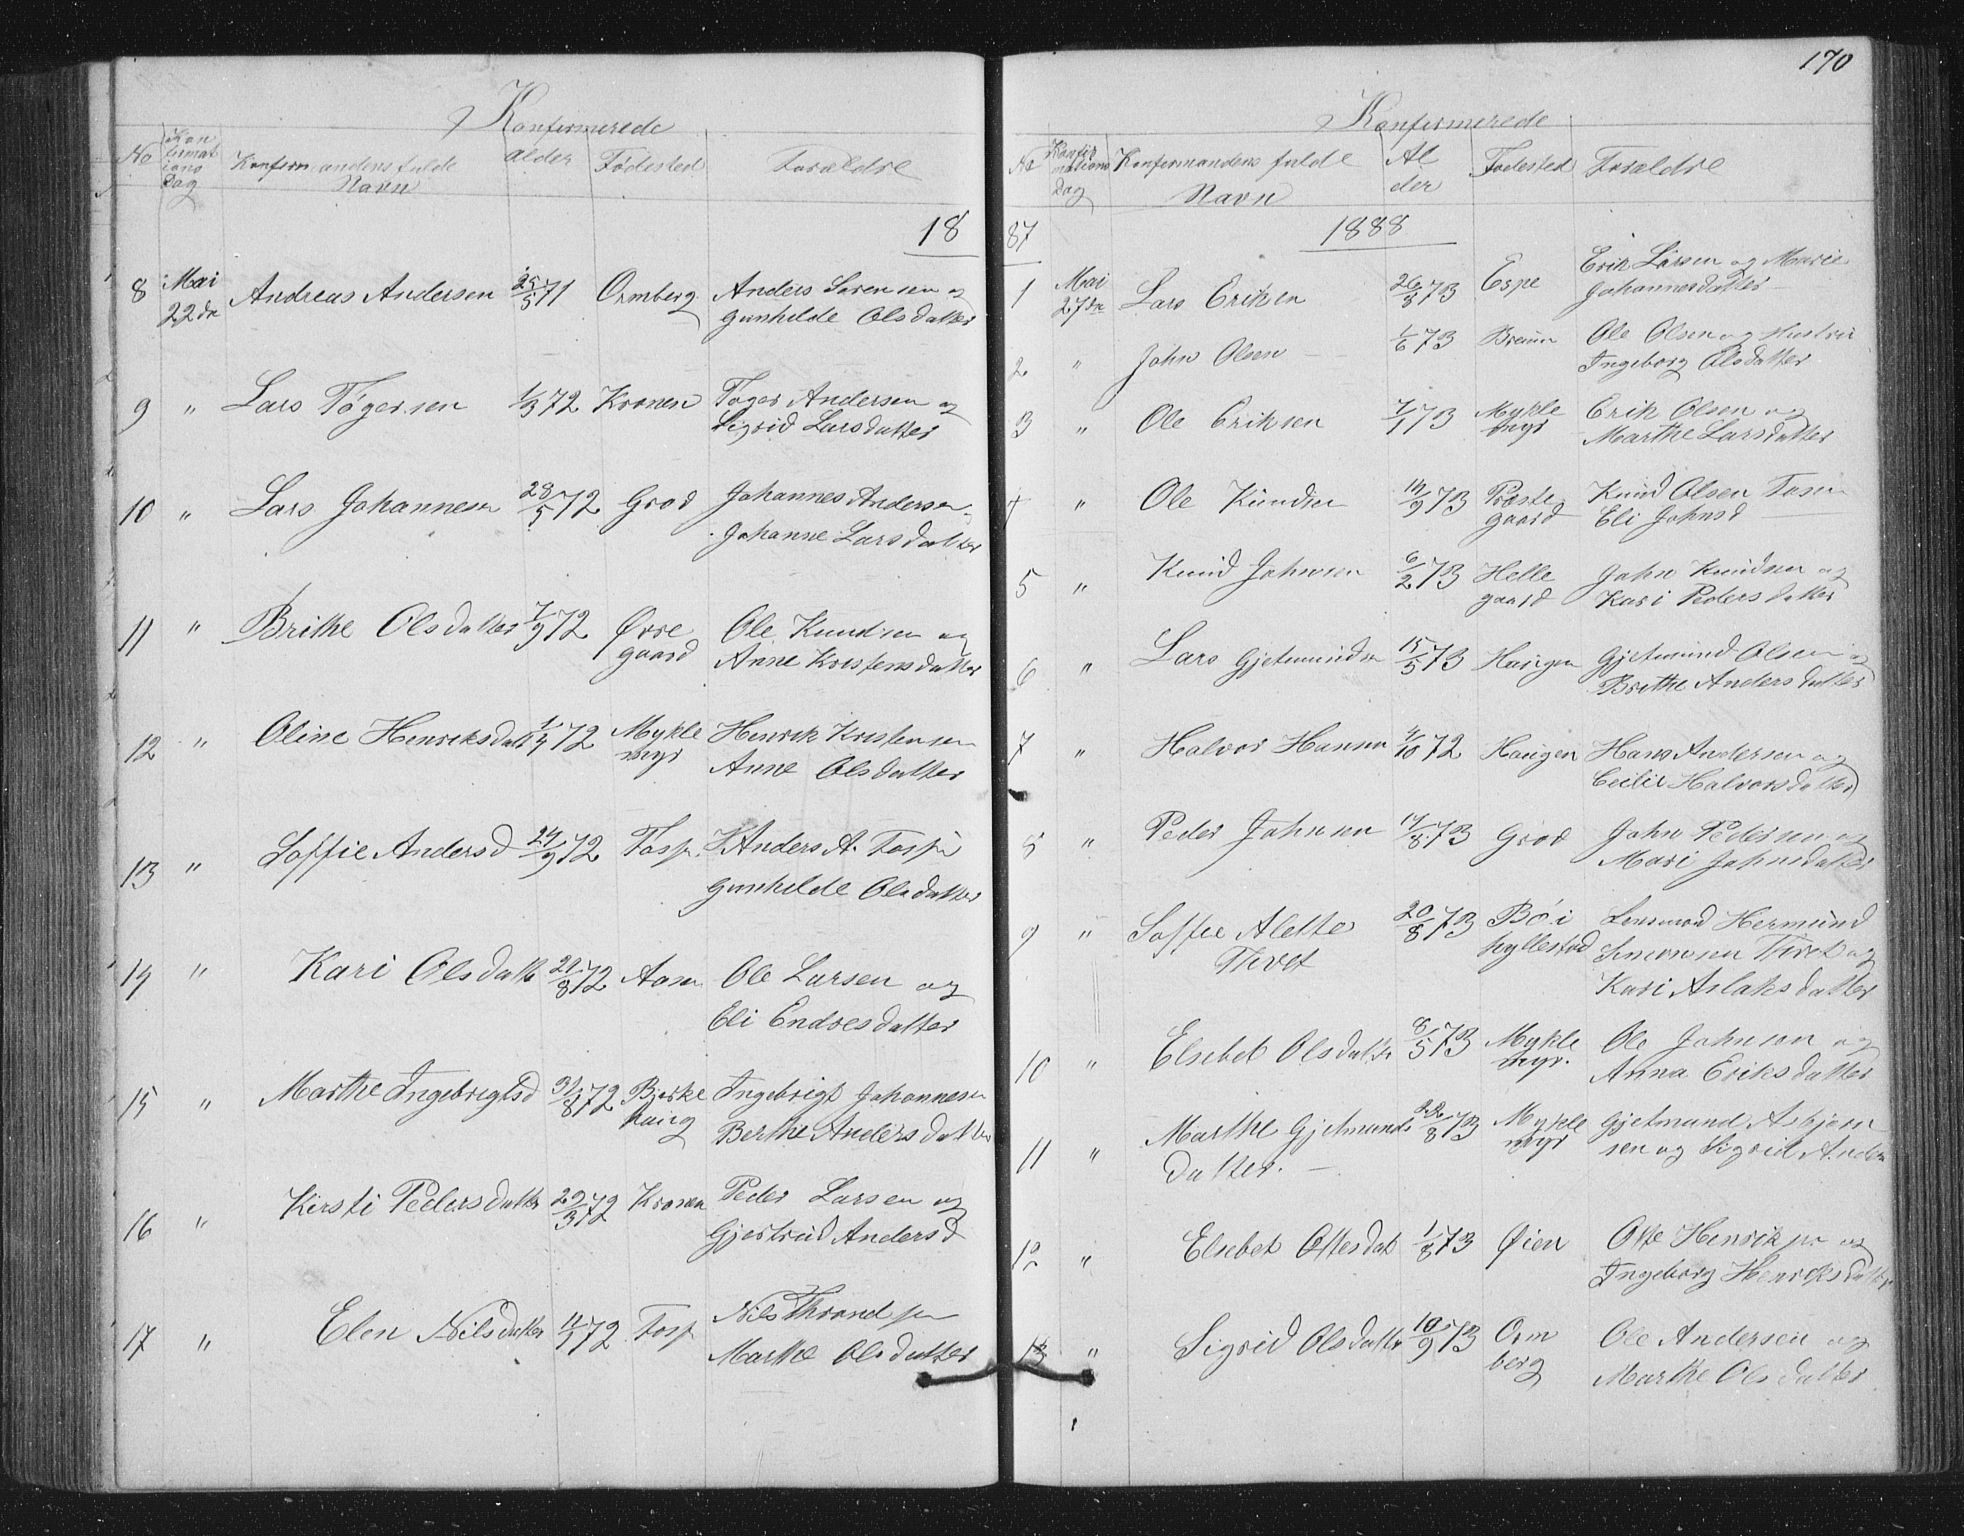 Konfirmerede
No
Kon
firmat
ions
Dag
Konfirmandens fulde
Navn
alder
Fødested
Forældre
18
8 Mai
22de
Andreas Andersen 25/5 71 Ormberg Anders Sørensen og
Gunhilde Olsdatter
9 " Lars Tøgersen 1/3 72 Kronen Tøger Andersen og
Sigrid Larsdatter
10 " Lars Johannesen 28/5 72 Grod Johannes Andersen
Johanne Larsdatter
11 " Brithe Olsdatter 7/9 72 Øvre
gaard
Ole Knudsen og
Anne Kristensdatter
12 " Oline Henriksdatt 1/4 72 Mykle
myr
Henrik Kristensen
Anne Olsdatter
13 " Soffie Andersd 24/9 72 Fosse Anders A. Fosse
Gunhilde Olsdatter
14 " Kari Olsdatte 21/8 72 Aasen Ole Larsen og
Eli Endresdatter
15 " Marthe Ingebrigtsd 31/8 72 Bjerke
haug
Ingebrigt Johannesen
Berthe Andersdatter
16 " Kirsti Pedersdatter 29/3 72 Kronen Peder Larsen og
Gjertrud Andersd
17 " Elen Nilsdatter 11/1 72 Fosse Nils Thrandsen
Marthe Olsdatter
170
Konfirmerede
No
Konfir
mations
Dag
Konfirmandens fulde
Navn
Al
der
Fødested
Forældre
87
1888
1 Mai
27de
Lars Eriksen 26/8 73 Espe Erik Larsen og Marie
Johannesdatter
2 " John Olsen 1/6 73 Ole Olsen og Hustru
Ingeborg Olsdatter
3 " Ole Eriksen 7/1 73 Mykle
myr
Erik Olsen og
Marthe Larsdatter
4 " Ole Knudsen 14/9 73 Præste
gaard
Knud Olsen
Eli Johnsd
5 " Knud Johnsen 6/2 73 Helle
gaard
John Knudsen og
Kari Pedersdatter
6 " Lars Gjetmundsen 15/5 73 Haugen Gjetmund Olsen og
Brithe Andersdatter
7 " Halvor Hansen 4/10 72 Haugen Hans Andersen og
Cecilie Halvorsdatter
8 " Peder Johnsen 14/8 73 Grod John Pedersen og
Mari Johnsdatter
9 " Soffie Alette
Tivet
20/8 73 Bøi
Hyllestad
Lensmand Hermund
Simonsen Tivet og
Kari Aslaksdatter
10 " Elsebet Olsdatter 8/5 73 Mykle
myr.
Ole Johnson og
Anna Eriksdatter
11 " Marthe Gjetmunds
datter.
22/8 73 Mykle
myr
Gjetmund Asbjørn
sen og Sigrid Anders
12 " Elsebet Ottesdat 1/8 73 Øien Otte Henriksen og
Ingeborg Henriksdatter
13 " Sigrid Olsdatter 10/9 73 Orm
berg
Ole Andersen og
Marthe Olsdatter